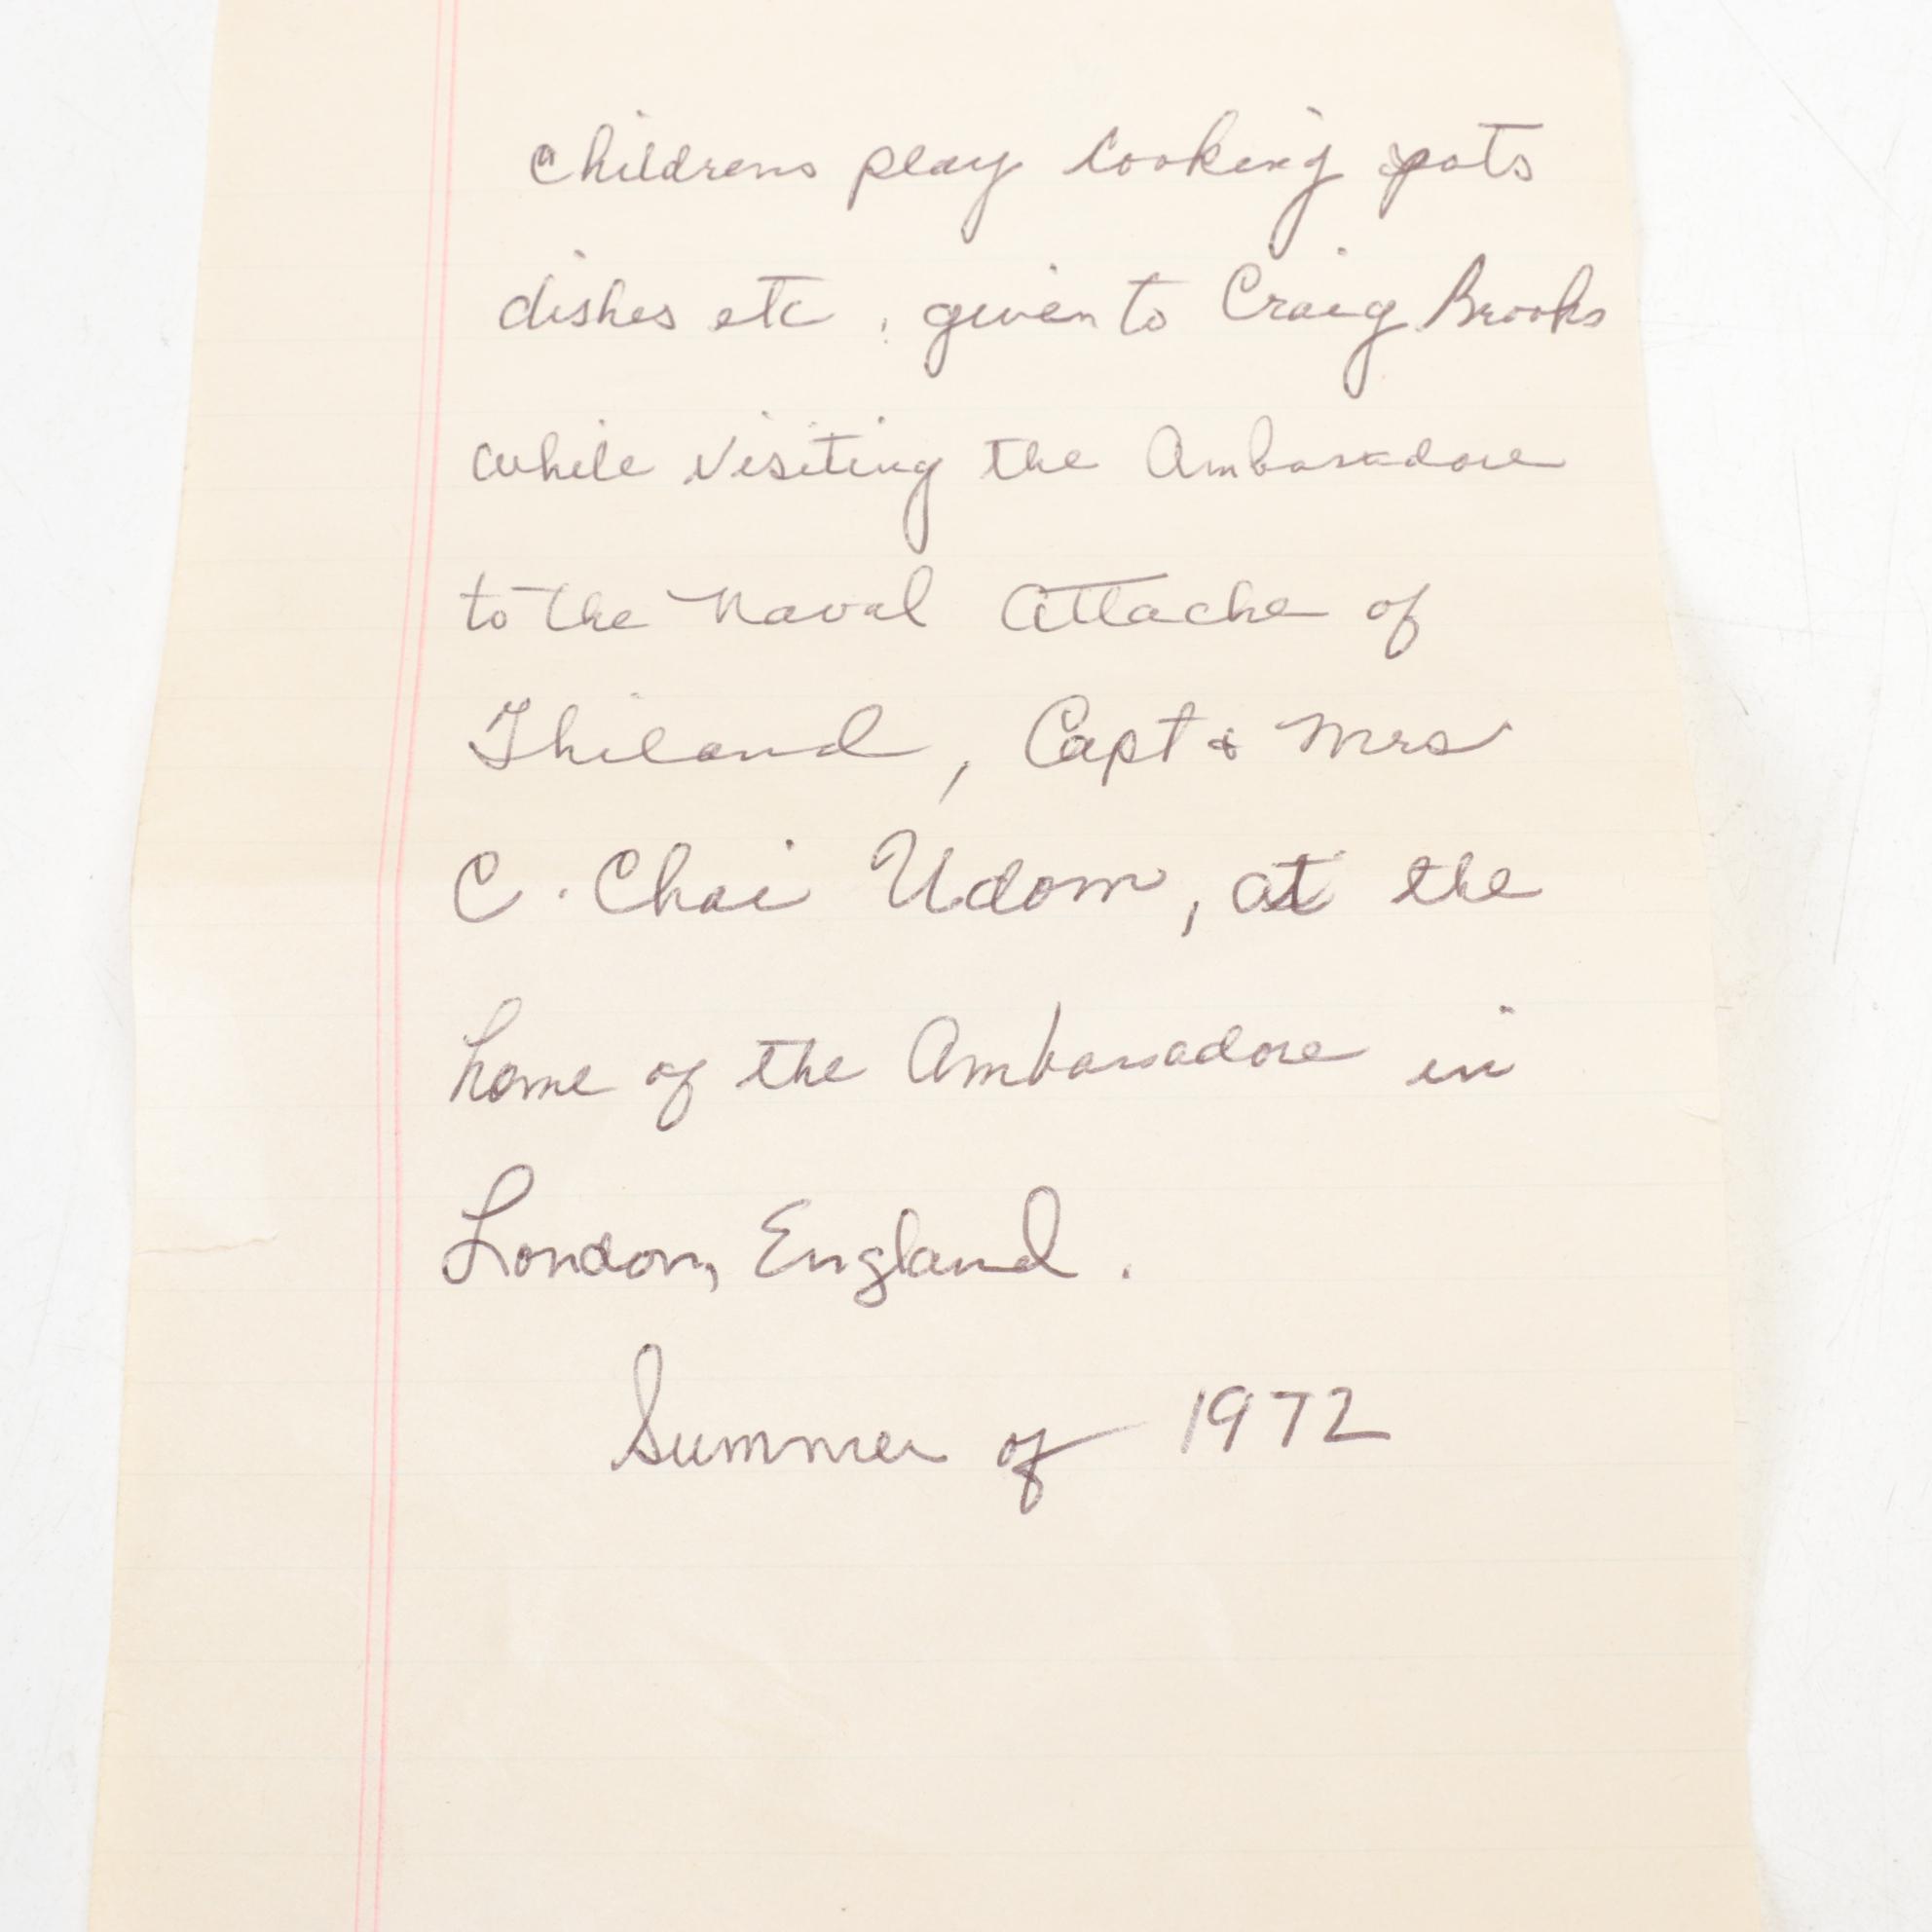 Childrens play cooking pots
dishes etc, given to Craig Brooks
while visiting the Ambassadore
to the Naval Attache of
Thiland, Capt & Mrs
C. Chai Udom, at the
home of the Ambassadore in
London, England.
Summer of 1972